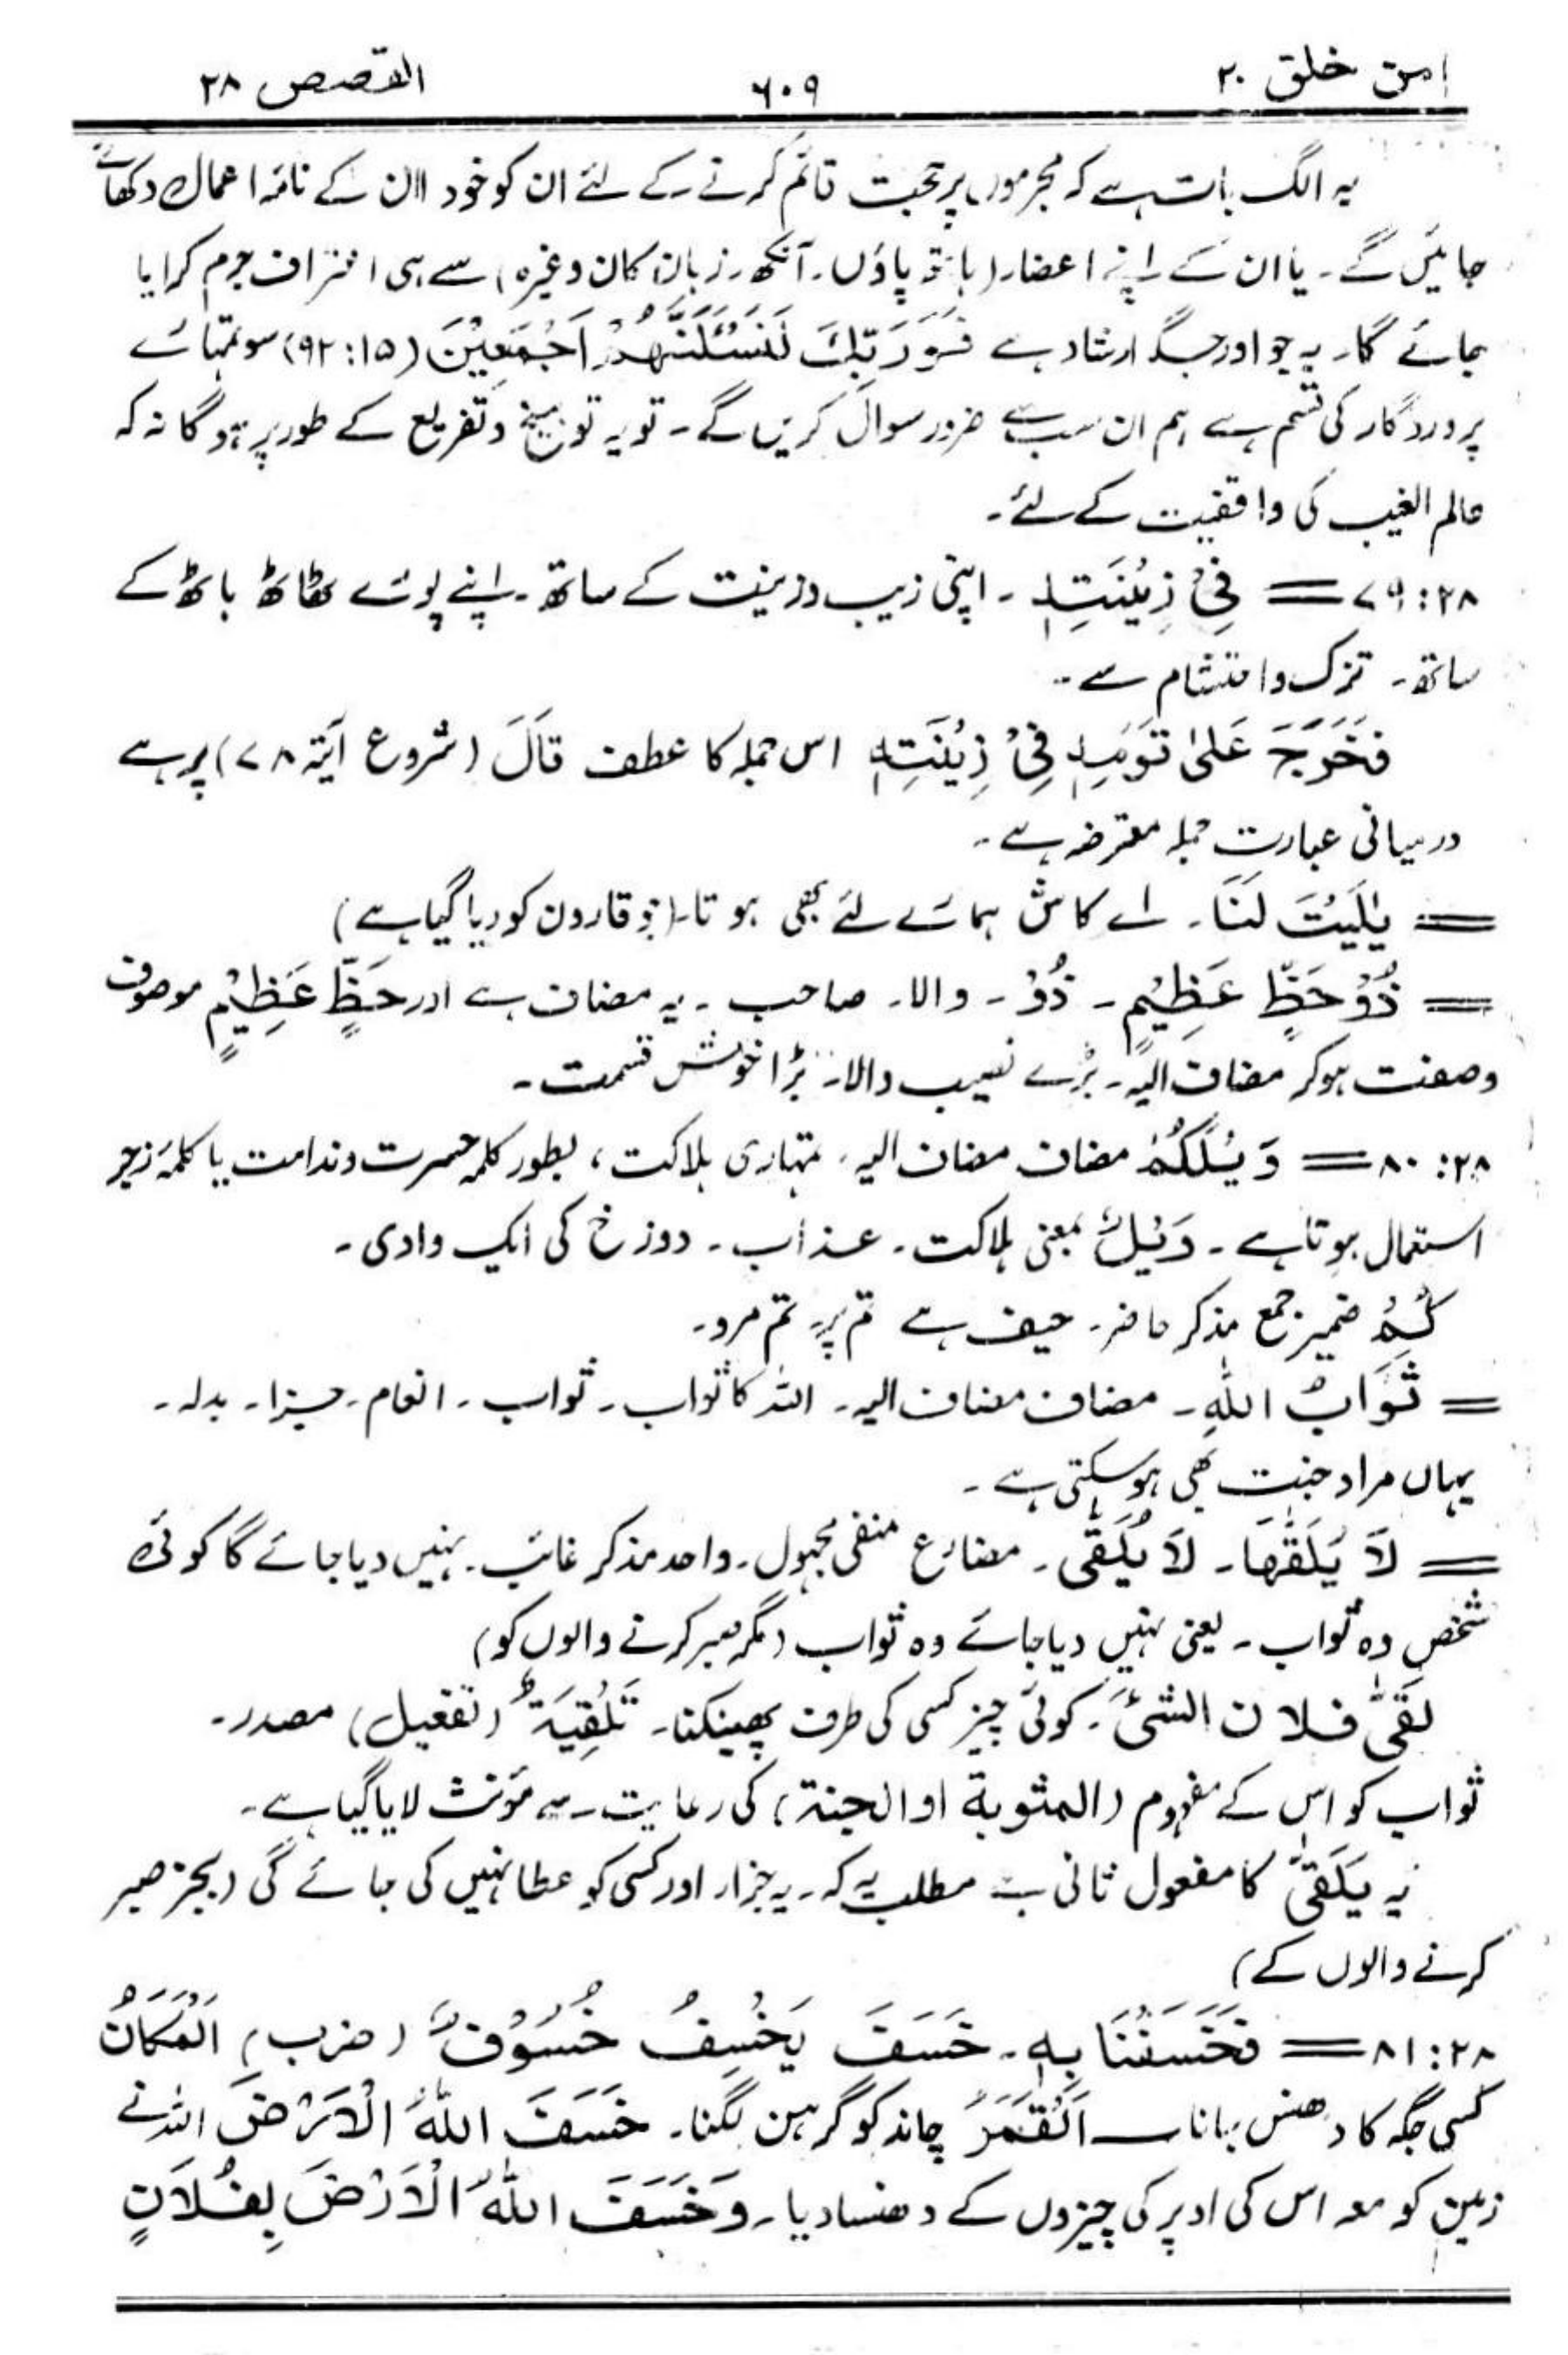 امن خلق ۲۰ ۶۰۹ القصص ۲۸
یہ الگ بات ہے کہ مجرموں پر حجت قائم کرنے کے لئے ان کو خود ان کے نامۂ اعمال دکھائے
جائیں گے۔ یا ان کے اپنے اعضاء (ہاتھ پاؤں۔ آنکھ۔ زبان کان وغیرہ) سے ہی اعتراف جرم کرایا
جائے گا۔ یہ جو اور جگہ ارشاد ہے فَوَرَبِّكَ لَنَسْئَلَنَّهُمْ اَجْمَعِيْنَ (۹۲:۱۵) سو تمہارے
پروردگار کی قسم ہے ہم ان سب سے ضرور سوال کریں گے۔ تو یہ توبیخ و تقریع کے طور پر ہوگا نہ کہ
عالم الغیب کی واقفیت کے لئے۔
۷۹:۲۸ = فِيْ زِيْنَتِهٖ ۔ اپنی زیب و زینت کے ساتھ۔ اپنے پورے ٹھاٹھ باٹھ کے
ساتھ۔ تزک و احتشام سے۔
فَخَرَجَ عَلٰى قَوْمِهٖ فِيْ زِيْنَتِهٖ اس جملہ کا عطف قَالَ (شروع آیۃ ۷۸) پر ہے
درمیانی عبارت جملہ معترضہ ہے۔
= يٰلَيْتَ لَنَا۔ اے کاش ہمارے لئے بھی ہوتا۔ (جو قارون کو دیا گیا ہے)
= ذُوْ حَظٍّ عَظِيْمٍ ۔ ذُوْ ۔ والا۔ صاحب ۔ یہ مضاف ہے اور حَظٍّ عَظِيْمٍ موصوف
وصفت ہوکر مضاف الیہ۔ بڑے نصیب والا۔ بڑا خوش قسمت۔
۸۰:۲۸ = وَيْلَكُمْ مضاف مضاف الیہ۔ تمہاری ہلاکت، بطور کلمہ حسرت و ندامت یا کلمۂ زجر
استعمال ہوتا ہے ۔ وَيْلٌ بمعنی ہلاکت۔ عذاب۔ دوزخ کی ایک وادی۔
كُمْ ضمیر جمع مذکر حاضر۔ حیف ہے تم پر۔ تم مرو۔
= ثَوَابُ اللّٰهِ ۔ مضاف مضاف الیہ۔ اللہ کا ثواب۔ ثواب۔ انعام۔ جزا۔ بدلہ۔
یہاں مراد جنت بھی ہوسکتی ہے۔
= لَا يُلَقّٰهَا۔ لَا يُلَقّٰى۔ مضارع منفی مجہول۔ واحد مذکر غائب۔ نہیں دیا جائے گا کوئی
شخص وہ ثواب۔ یعنی نہیں دیا جائے وہ ثواب (مگر صبر کرنے والوں کو)
لَقّٰى فلان الشیءَ۔ کوئی چیز کسی کی طرف پھینکنا۔ تَلْقِيَةٌ (تفعیل) مصدر۔
ثواب کو اس کے مفہوم (المثوبة او الجنة) کی رعایت سے مؤنث لایا گیا ہے۔
یہ يُلَقّٰى کا مفعول ثانی ہے مطلب یہ کہ۔ یہ جزاء اور کسی کو عطا نہیں کی جائے گی (بجز صبر
کرنے والوں کے)
۸۱:۲۸ = فَخَسَفْنَا بِهٖ۔ خَسَفَ يَخْسِفُ خُسُوْفٌ (ضرب) اَلْمَكَانُ
کسی جگہ کا دھنس جانا۔ اَلْقَمَرُ چاند کو گرہن لگنا۔ خَسَفَ اللّٰهُ الْاَرْضَ اللہ نے
زمین کو مع اس کی اوپر کی چیزوں کے دھنسا دیا۔ وَخَسَفَ اللّٰهُ الْاَرْضَ بِفُلَانٍ